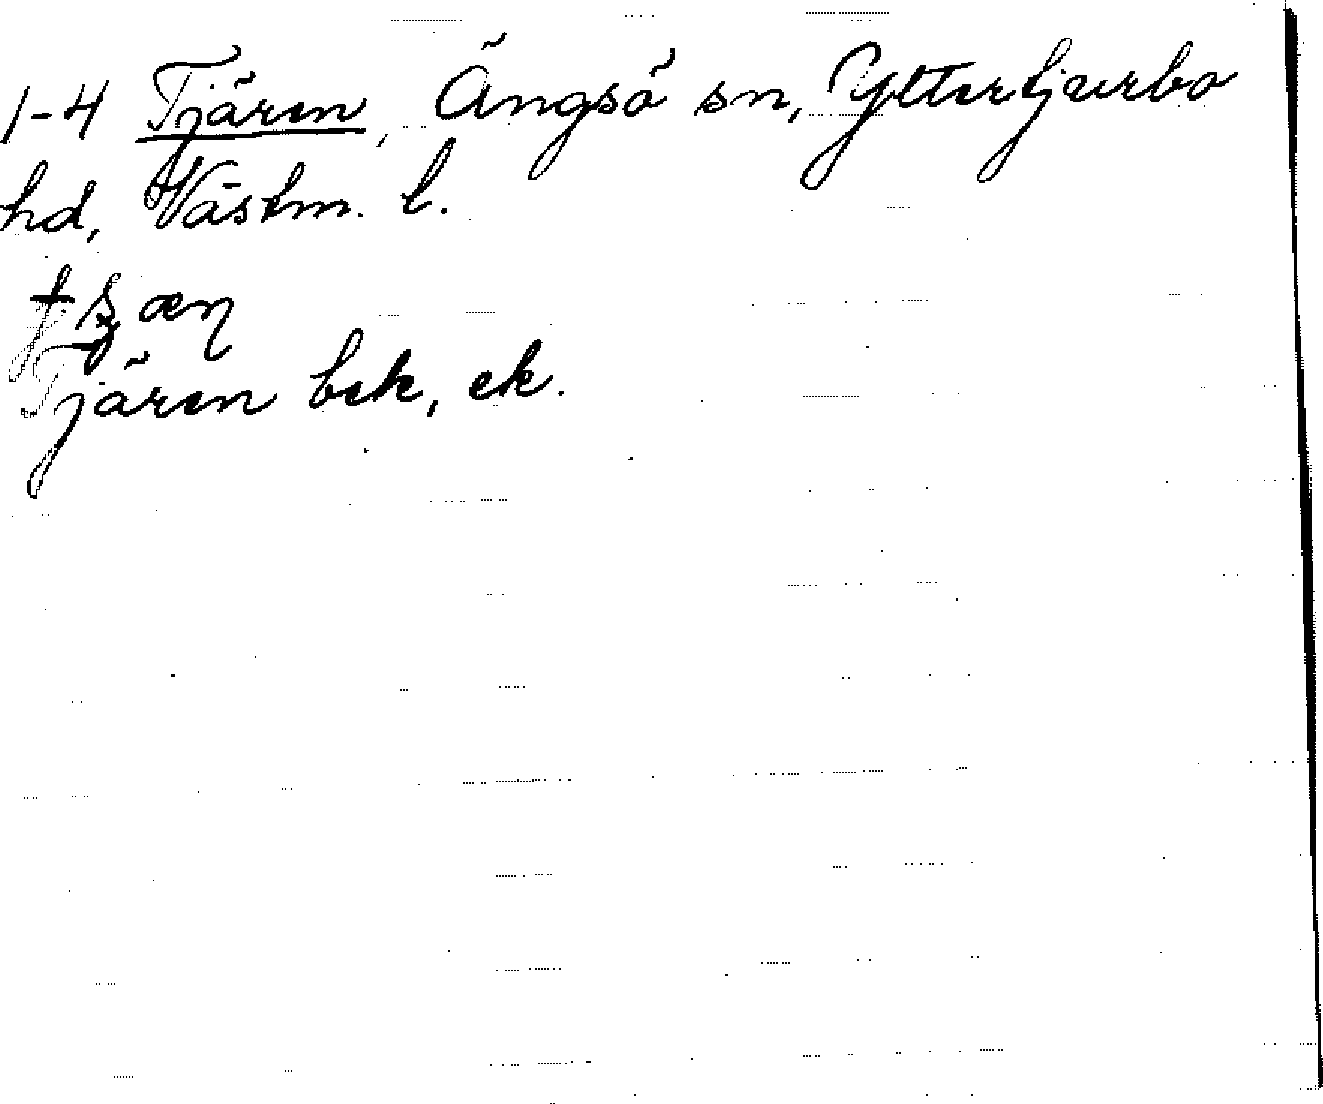 1-4 Tjären, Ängsö sn, Yttertjurbo
hd, Västm. l.
Tjären bek, ek.